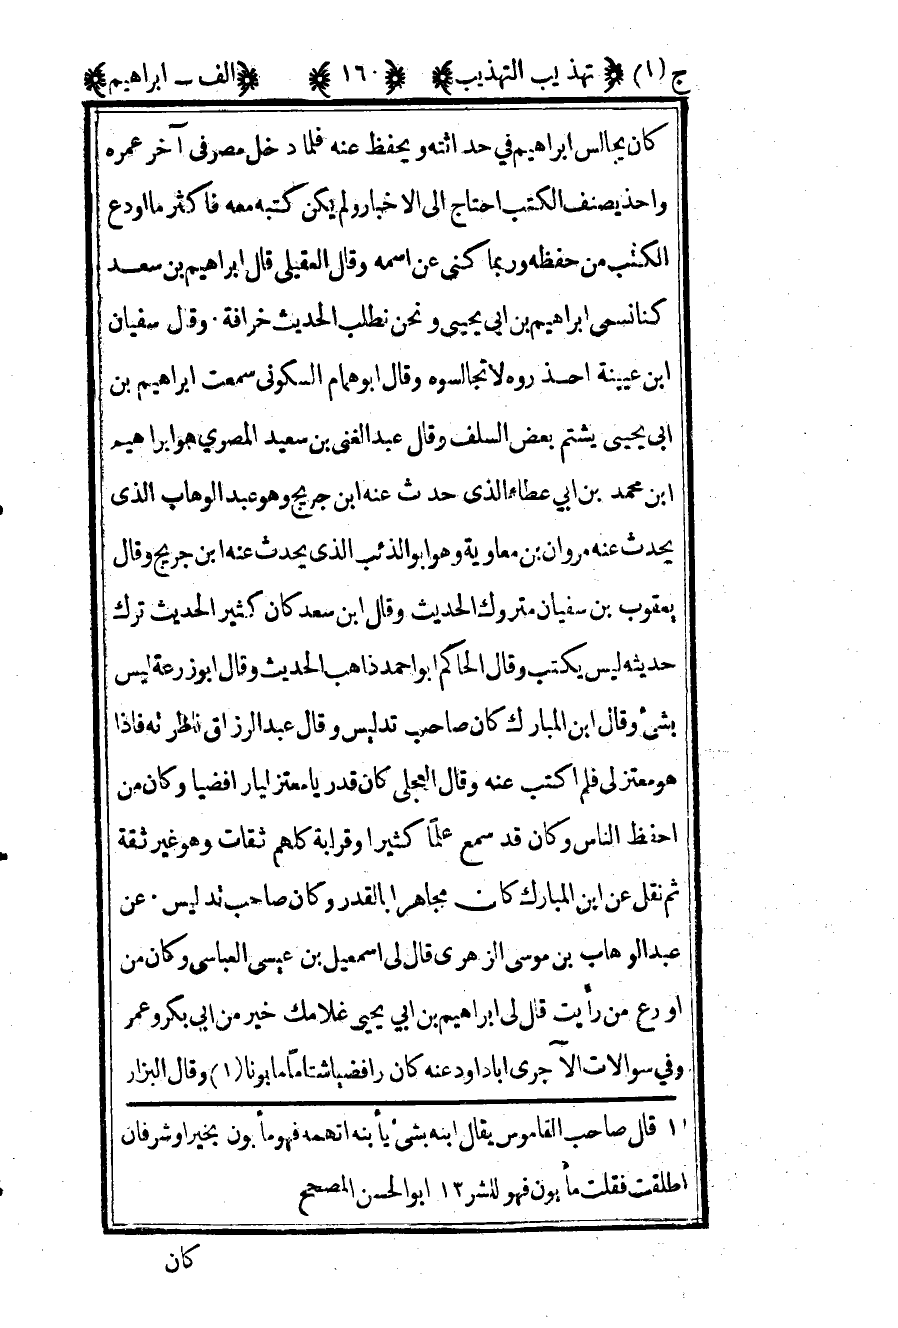 ج (١) ﴿ تهذيب التهذيب ﴾ ﴿ ١٦٠ ﴾ ﴿ الف ــ ابراهيم ﴾
كان يجالس ابراهيم في حداثته ويحفظ عنه فلما دخل مصر فى آخر عمره
واخذ يصنف الكتب احتاج الى الاخبار ولم يكن كتبه معه فاكثر ما اودع
الكتب من حفظه وربما كنى عن اسمه وقال العقيلى قال ابراهيم بن سعد
كنا نسمى ابراهيم بن ابى يحيى ونحن نطلب الحديث خرافة ٠ وقال سفيان
ابن عيينة احذروه لا تجالسوه وقال ابو همام السكونى سمعت ابراهيم بن
ابى يحيى يشتم بعض السلف وقال عبد الغنى بن سعيد المصري هو ابراهيم
ابن محمد بن ابي عطاء الذى حدث عنه ابن جريج وهو عبد الوهاب الذى
يحدث عنه مروان بن معاوية وهو ابو الذئب الذى يحدث عنه ابن جريج وقال
يعقوب بن سفيان متروك الحديث وقال ابن سعد كان كثير الحديث ترك
حديثه ليس يكتب وقال الحاكم ابو احمد ذاهب الحديث وقال ابو زرعة ليس
بشئ وقال ابن المبارك كان صاحب تدليس وقال عبد الرزاق ناظرته فاذا
هو معتزلى فلم اكتب عنه وقال العجلى كان قدريا معتزليا رافضيا وكان من
احفظ الناس وكان قد سمع علما كثيرا وقرابة كلهم ثقات وهو غير ثقة
ثم نقل عن ابن المبارك كان مجاهرا بالقدر وكان صاحب تدليس ٠ عن
عبد الوهاب بن موسى الزهرى قال لى اسمعيل بن عيسى العباسى وكان من
اورع من رأيت قال لى ابراهيم بن ابي يحيى غلامك خير من ابى بكر وعمر
وفي سوالات الآجرى ابا داود عنه كان رافضيا شتاماً مابونا (١) وقال البزار
١١ قال صاحب القاموس يقال ابنه بشئ يأبنه اتهمه فهو مأبون بخير او شر فان
اطلقت فقلت مأبون فهو للشر ١٢ ابو الحسن المصحح
كان